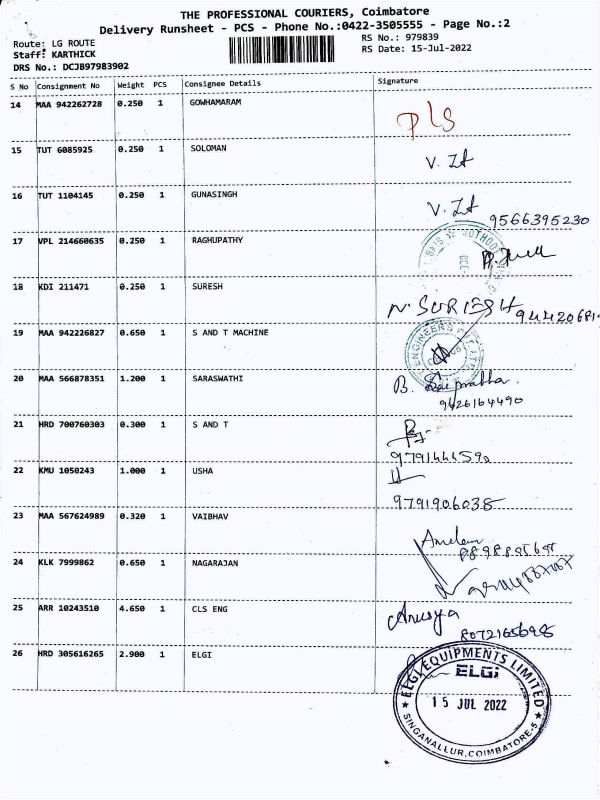 THE PROFESSIONAL COURIERS, Coimbatore
Delivery Runsheet - PCS - Phone No.:0422-3505555 - Page No.:2
Route: LG ROUTE
RS No.: 979839
Staff: KARTHICK
RS Date: 15-Jul-2022
DRS No.: DCJB97983902
S No Consignment No Weight PCS Consignee Details Signature
14 MAA 942262728 0.250 1 GOWHAMARAM
PLS
15 TUT 6085925 0.250 1 SOLOMAN
V. Id
16 TUT 1104145 0.250 1 GUNASINGH
V. Id
9566395230
17 VPL 214660635 0.250 1 RAGHUPATHY
18 KDI 211471 0.250 1 SURESH
N. SURESH
19 MAA 942226827 0.650 1 S AND T MACHINE
ENGINEERS
20 MAA 566878351 1.200 1 SARASWATHI
B. Saiprabha.
9426164490
21 HRD 700760303 0.300 1 S AND T
22 KMU 1050243 1.000 1 USHA
9791906038
23 MAA 567624989 0.320 1 VAIBHAV
24 KLK 7999862 0.650 1 NAGARAJAN
25 ARR 10243510 4.650 1 CLS ENG
Anusya
26 HRD 305616265 2.900 1 ELGI
ELGI EQUIPMENTS LIMITED
ELGi
15 JUL 2022
SINGANALLUR, COIMBATORE-5